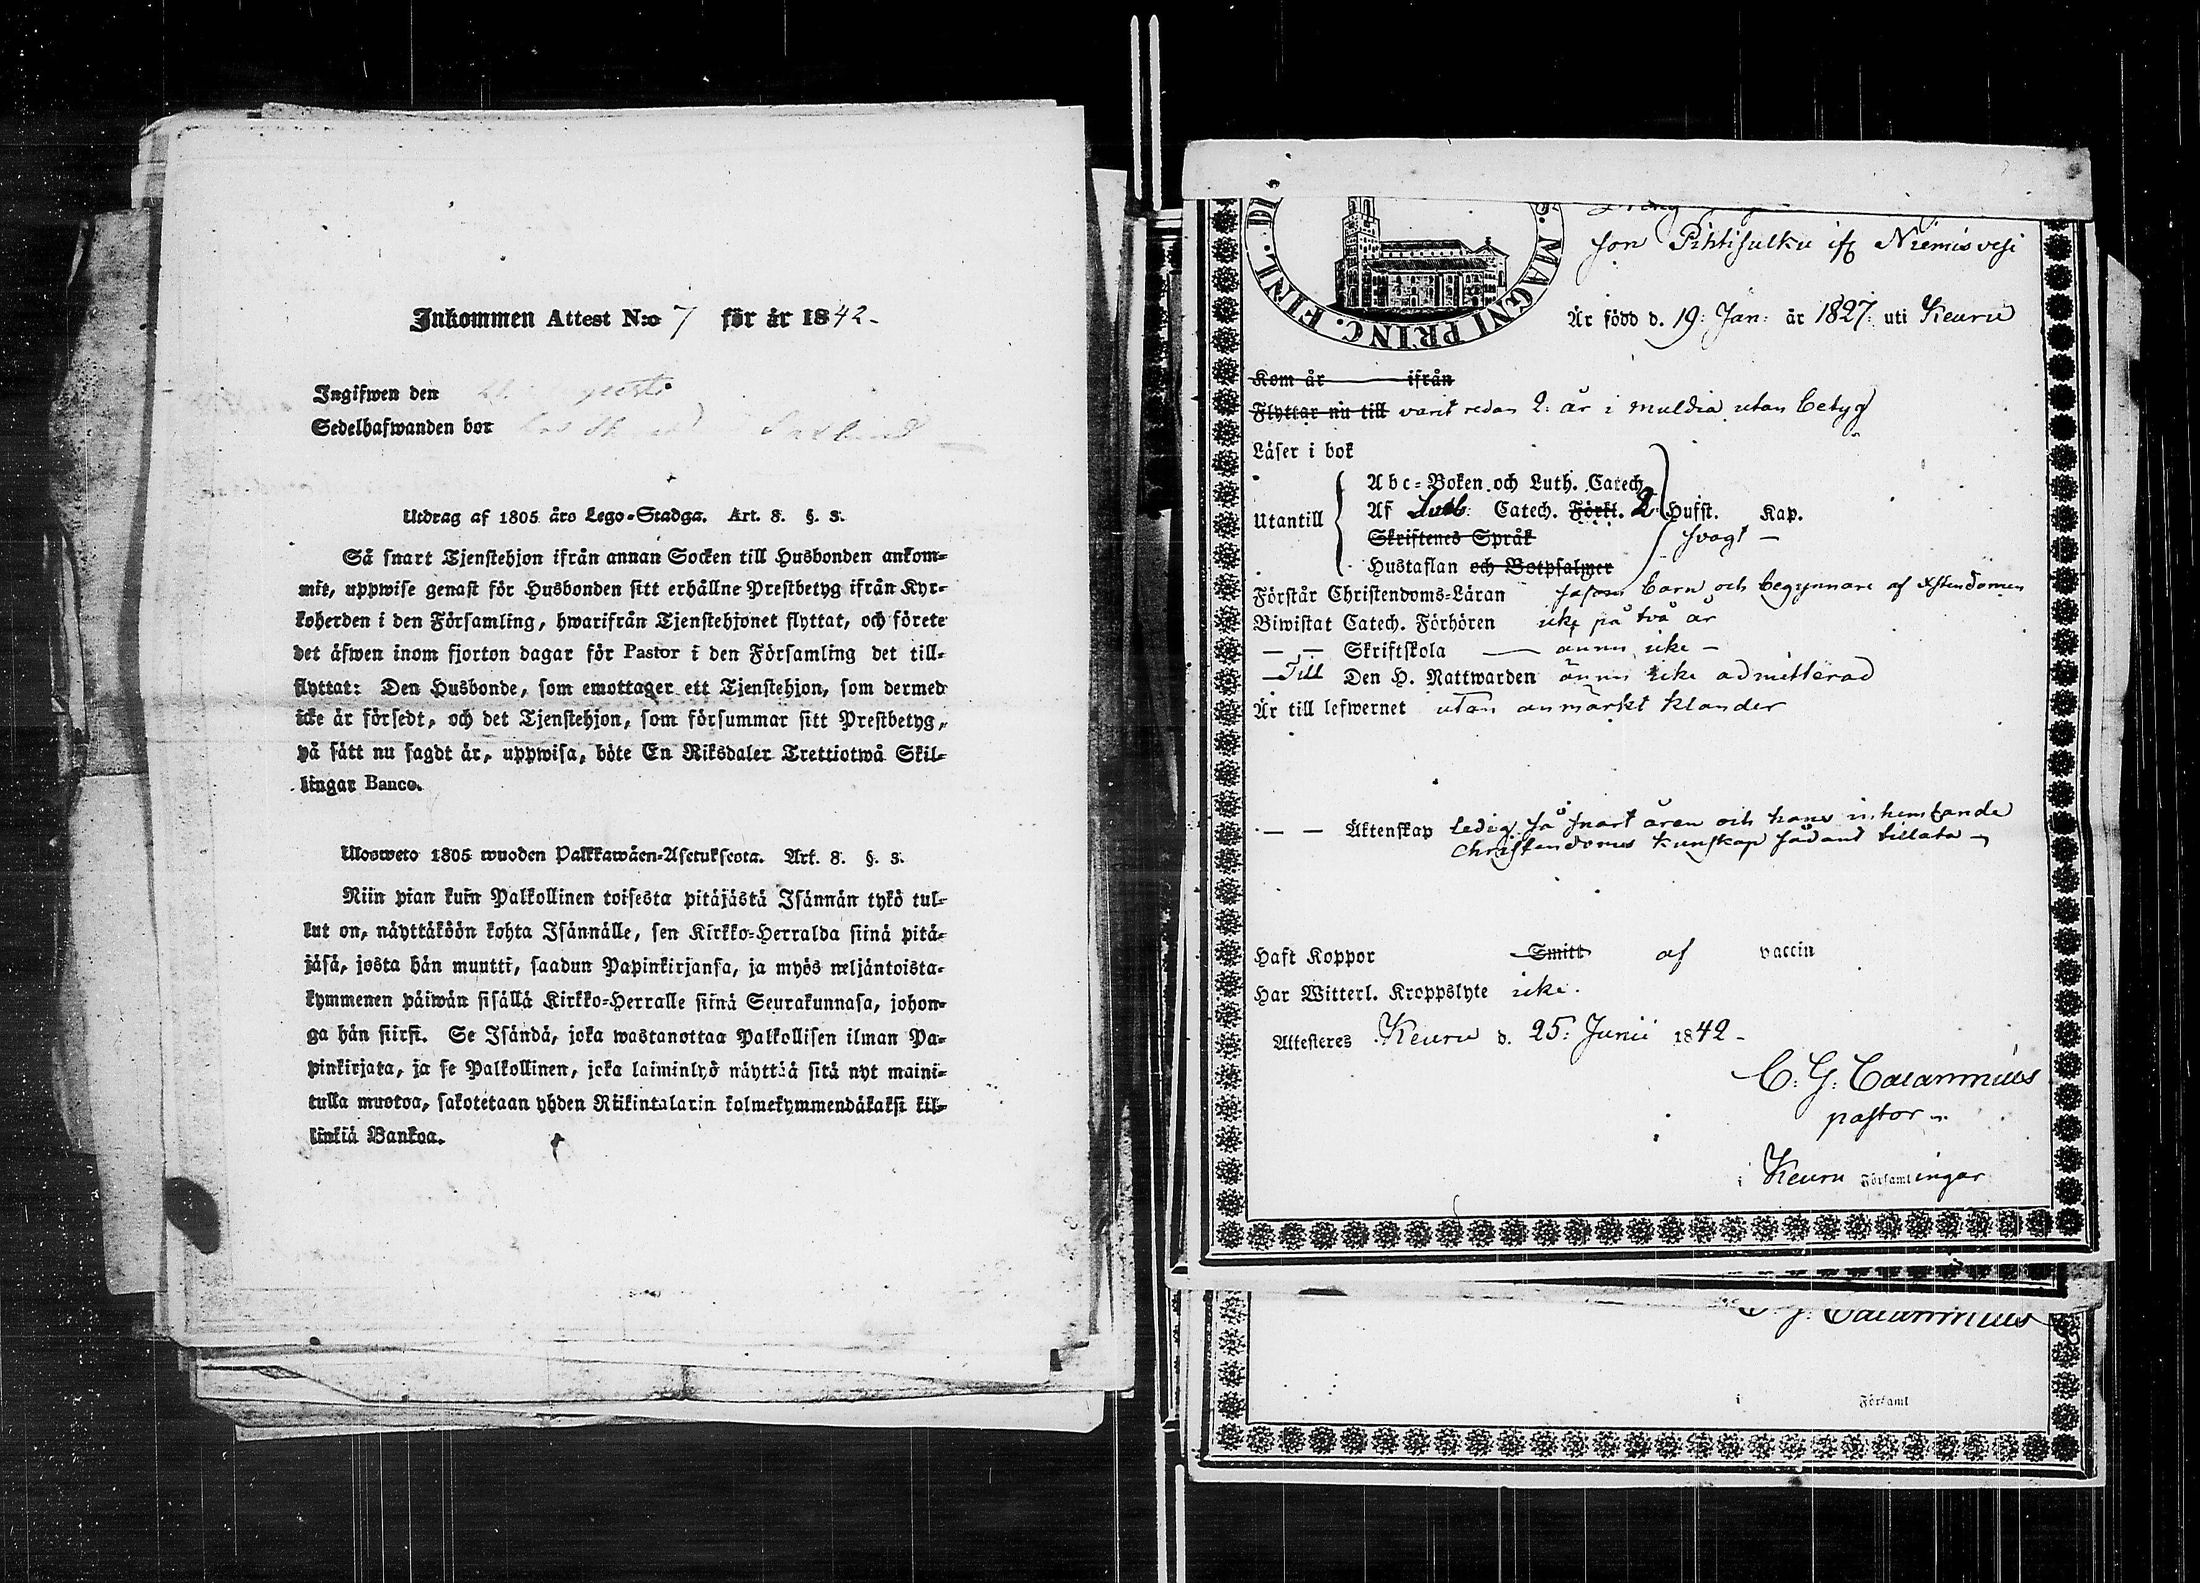 Inkommen Attest N:o 7 för år 1842-
Ingifwen den
Sedelhafwanden bor
Utdrag af 1805 års Lego-Stadga. Art. 8. §. 3.
Så snart Tjenstehjon ifrån annan Socken till Husbonden ankom-
mit, uppwise genast för Husbonden sitt erhållne Prestbetyg ifrån Kyr-
koherden i den Församling, hwarifrån Tjenstehjonet flyttat, och förete
det äfwen inom fjorton dagar för Pastor i den Församling det till-
flyttat: Den Husbonde, som emottager ett Tjenstehjon, som dermed
icke är försedt, och det Tjenstehjon, som försummar sitt Prestbetyg,
på sätt nu sagdt är, uppwisa, böte En Riksdaler Trettiotwå Skil-
lingar Banco.
Ulosweto 1805 wuoden Palkkawäen-Asetuksesta. Art. 8. §. 3.
Niin pian kuin Palkollinen toisesta pitäjästä Isännän tykö tul-
lut on, näyttäköön kohta Isännälle, sen Kirkko-Herralda siinä pitä-
jäsä, josta hän muutti, saadun Papinkirjansa, ja myös neljäntoista-
kymmenen päiwän sisällä Kirkko-Herralle siinä Seurakunnasa, johon-
ga hän siirsi. Se Isändä, joka wastanottaa Palkollisen ilman Pa-
pinkirjata, ja se Palkollinen, joka laiminlyö näyttää sitä nyt maini-
tulla muotoa, sakotetaan yhden Riikintalarin kolmekymmendäkaksi kil-
linkiä Bankoa.
MAGNI PRINC. FINL.
son Pihtisulku ifr Niemisvesi
Är född d. 19: Jan: år 1827: uti Keuru
Kom år ifrån
Flyttar nu till varit redan 2: år i muldia utan betyg
Läser i bok
Abc-Boken och Luth. Catech.
Utantill Af Luth: Catech. Förkl. 2 Hufst. Kap.
Skriftenes Språk svagt -
Hustaflan och Botpsalmer
Förstår Christendoms-Läran såsom barn och begynnare af Xstendomen
Biwistat Catech. Förhören icke på två år
— — Skriftskola — ännu icke -
— Till Den H. Nattwarden ännu icke admitterad
Är till lefwernet utan anmärkt klander
— — Äktenskap ledig så snart åren och hans inhemtande
Christendoms kunskap sådant tillåta -
Haft Koppor Smitt af vaccin
Har Witterl. Kroppslyte icke.
Attesteres Keuru d. 25: Junii 1842-
C. G. Calamnius
pastor
i Keuru Församlingar
C. G. Calamnius
i Församl